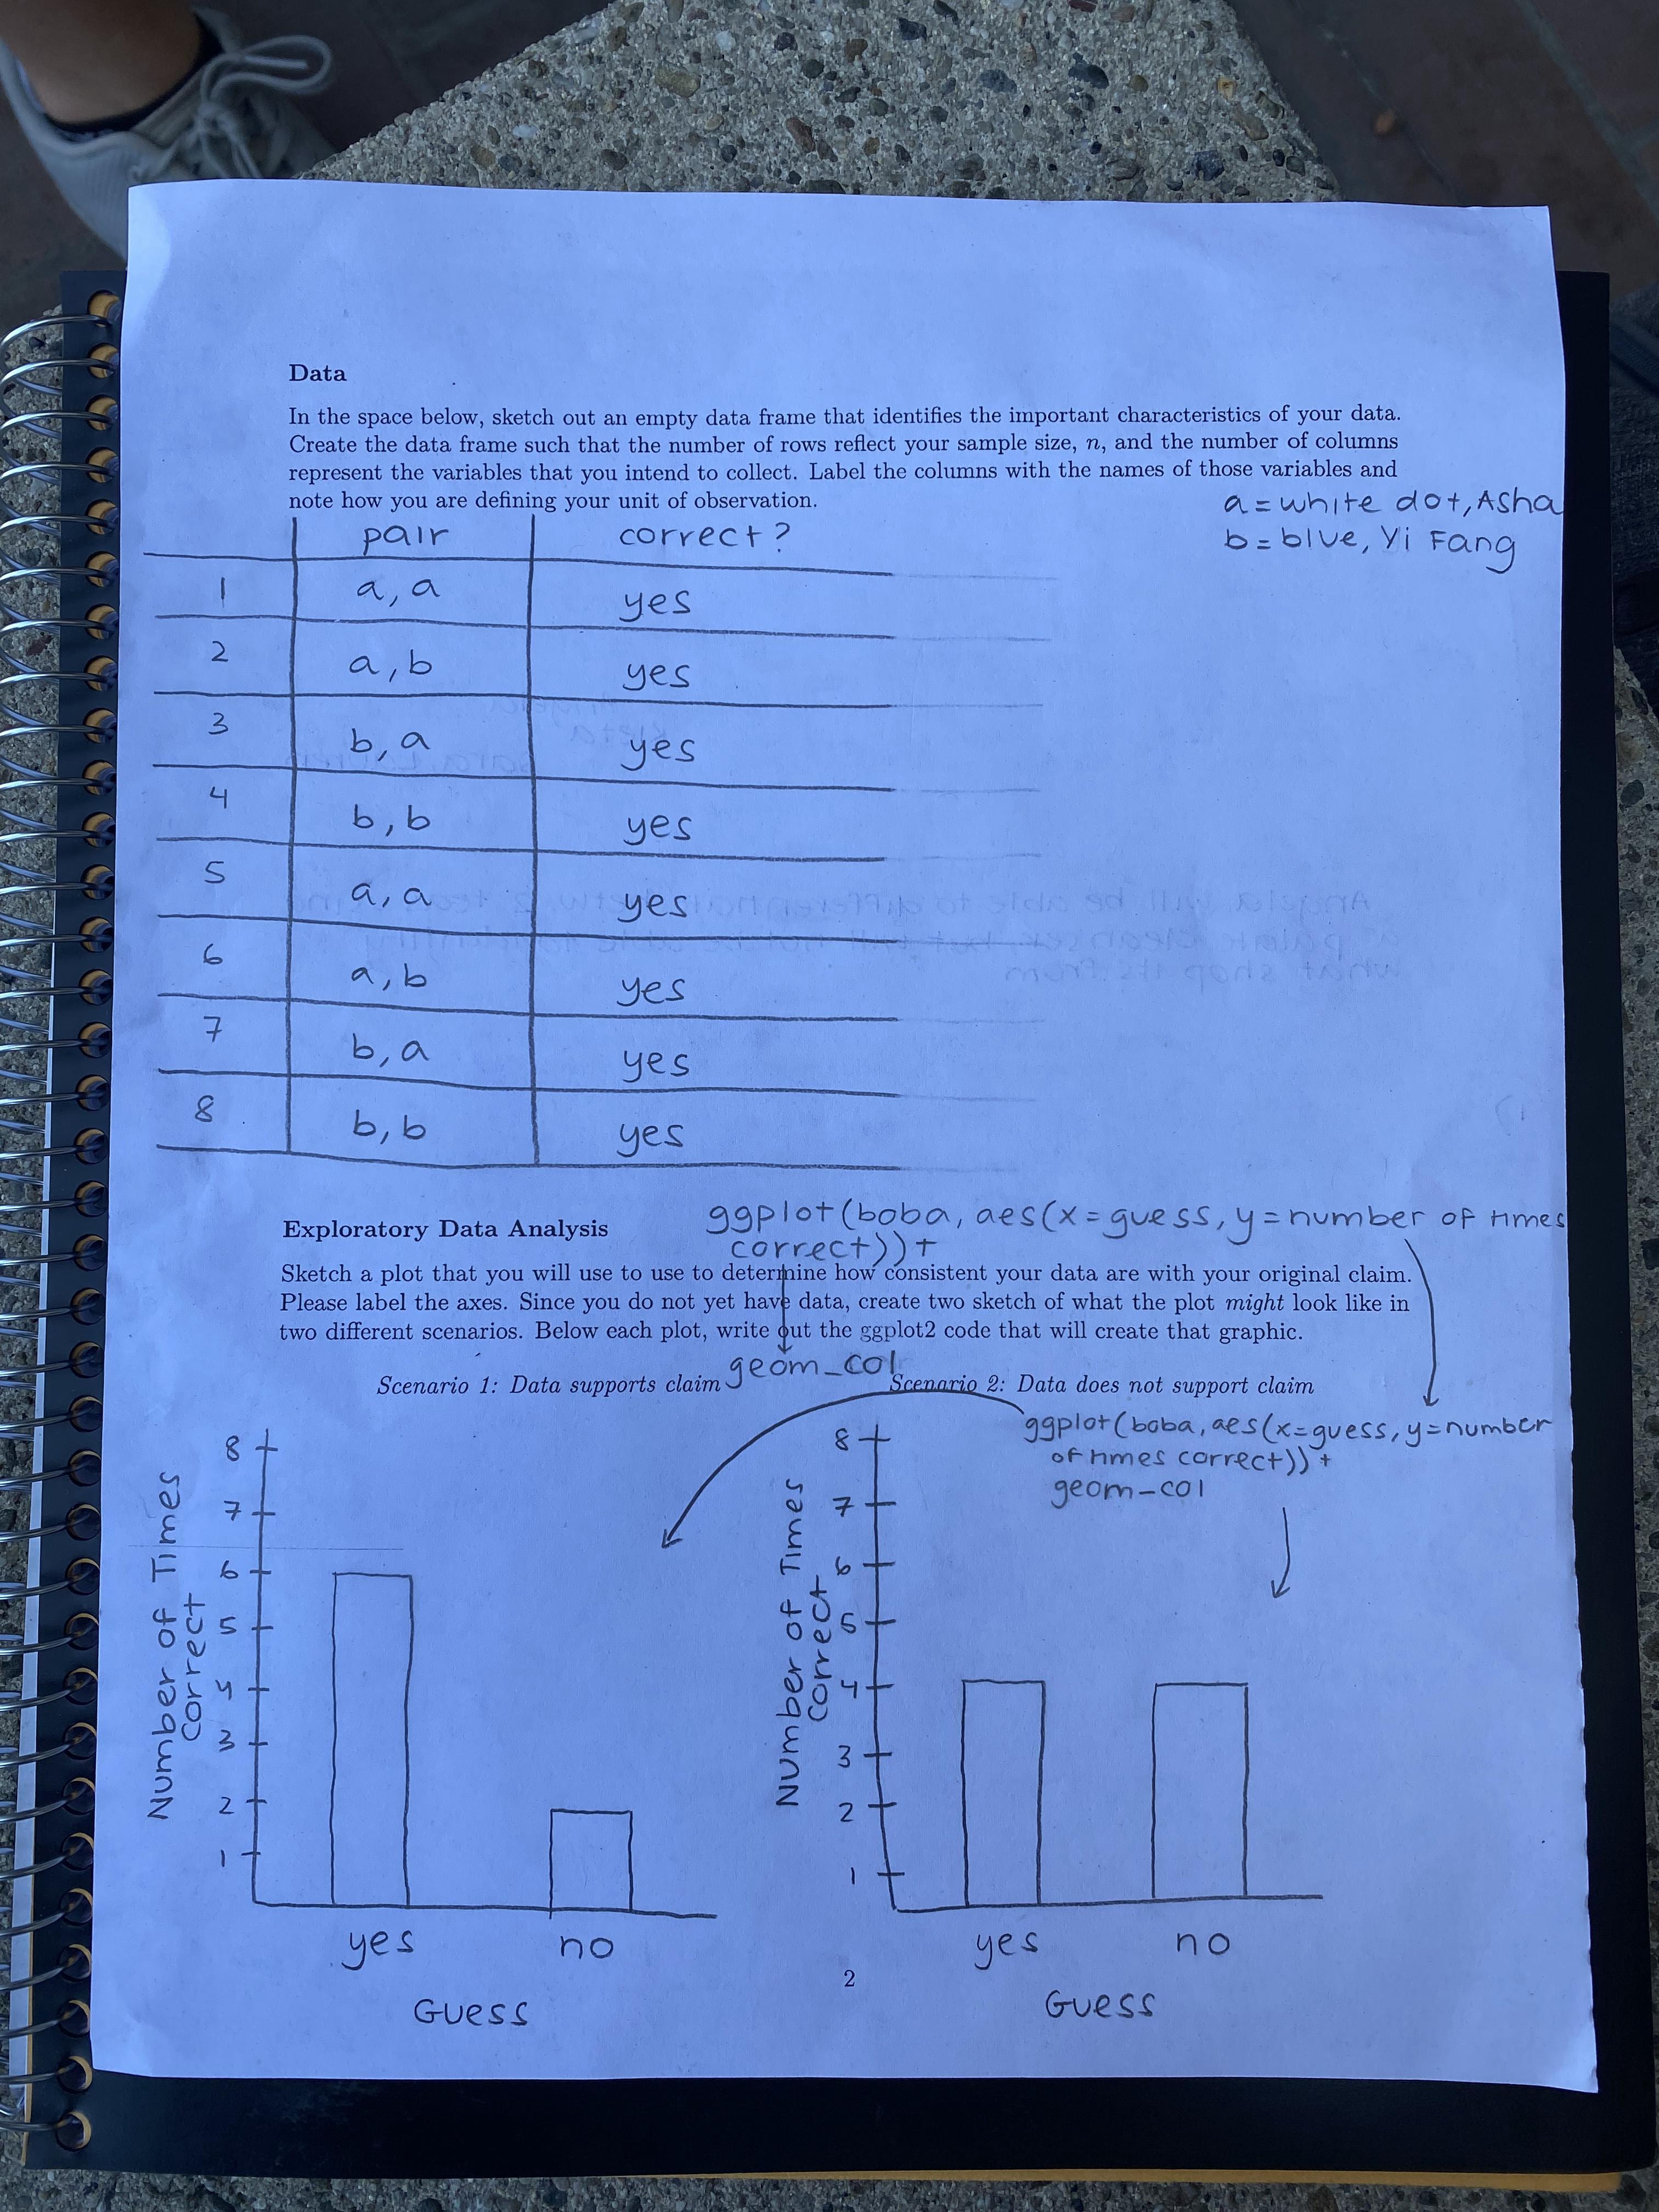 Data
In the space below, sketch out an empty data frame that identifies the important characteristics of your data.
Create the data frame such that the number of rows reflect your sample size, n, and the number of columns
represent the variables that you intend to collect. Label the columns with the names of those variables and
note how you are defining your unit of observation.
a = white dot, Asha
b = blue, Yi Fang
pair correct?
1 a, a yes
2 a, b yes
3 b, a yes
4 b, b yes
5 a, a yes
6 a, b yes
7 b, a yes
8 b, b yes
Exploratory Data Analysis
ggplot(boba, aes(x = guess, y = number of times
correct)) +
Sketch a plot that you will use to use to determine how consistent your data are with your original claim.
Please label the axes. Since you do not yet have data, create two sketch of what the plot might look like in
two different scenarios. Below each plot, write out the ggplot2 code that will create that graphic.
geom_col
Scenario 1: Data supports claim
Scenario 2: Data does not support claim
ggplot(boba, aes(x=guess, y=number
of times correct)) +
geom_col
Number of Times
Correct
8
7
6
5
3
2
1
yes no
Guess
Number of Times
Correct
8
7
6
5
4
3
2
1
yes no
Guess
2